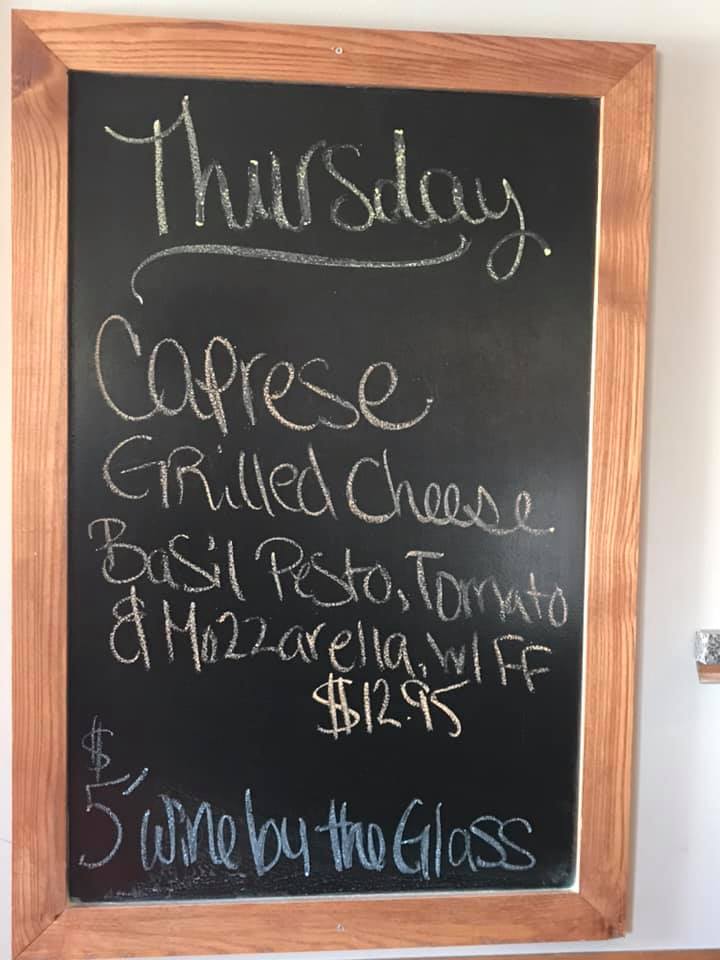 Thursday
Caprese
Grilled Cheese
Basil Pesto, Tomato
& Mozzarella, w/ FF
$12.95
$
5 wine by the Glass